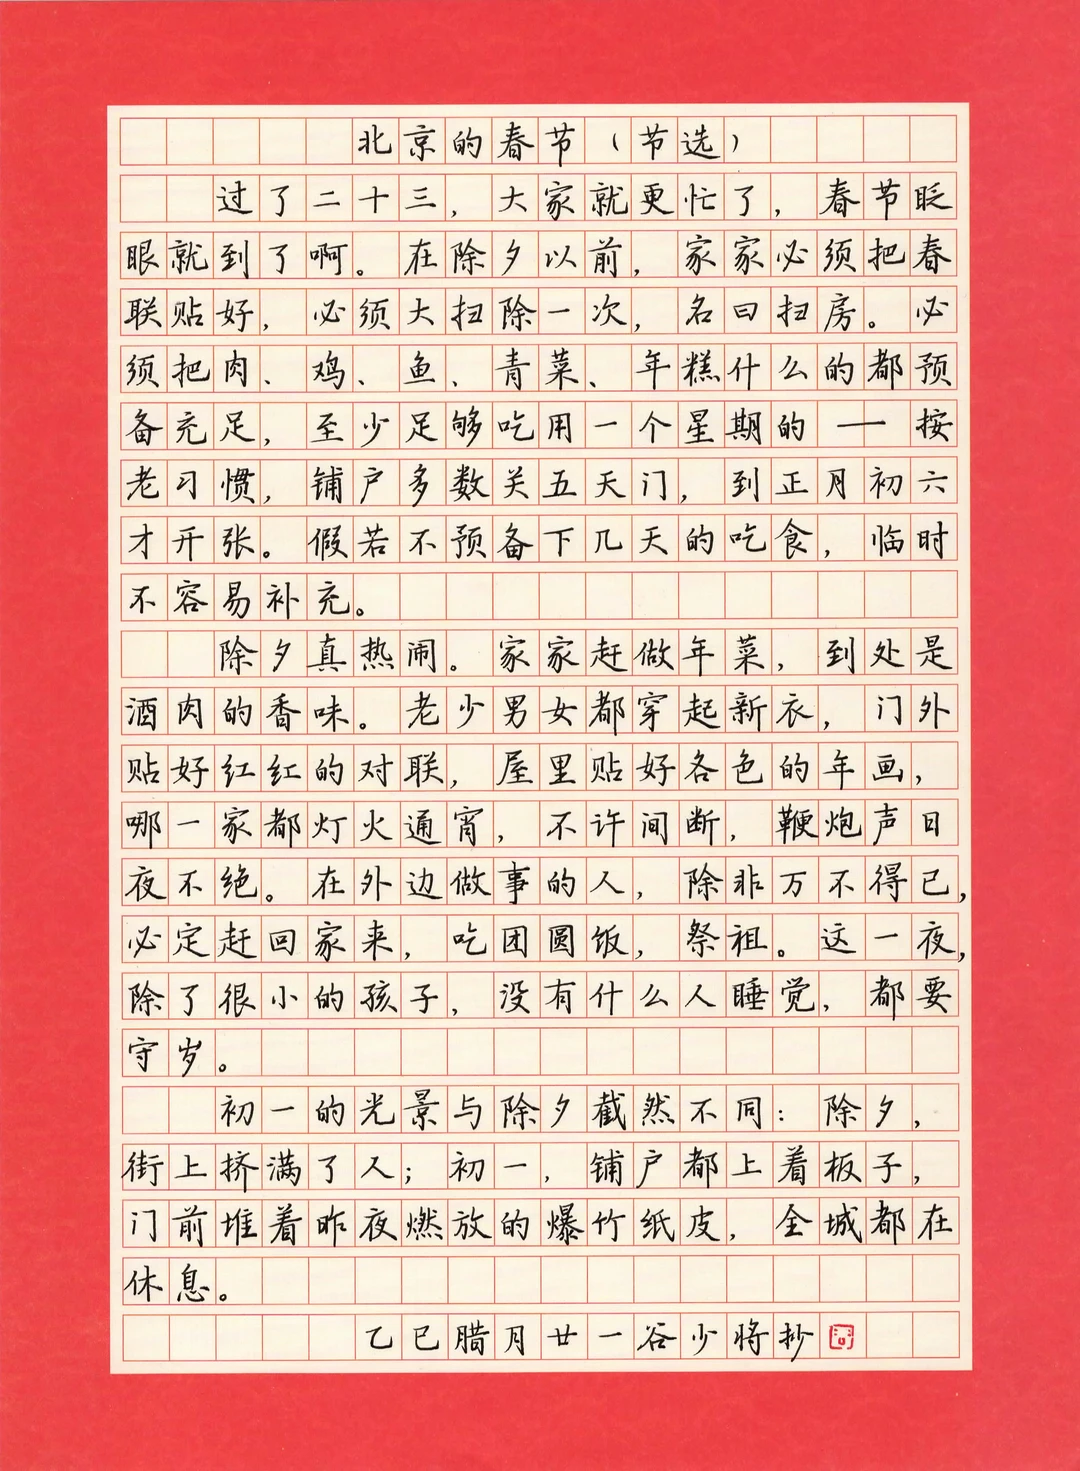 北京的春节（节选）
过了二十三，大家就更忙了，春节眨
眼就到了啊。在除夕以前，家家必须把春
联贴好，必须大扫除一次，名曰扫房。必
须把肉、鸡、鱼、青菜、年糕什么的都预
备充足，至少足够吃用一个星期的——按
老习惯，铺户多数关五天门，到正月初六
才开张。假若不预备下几天的吃食，临时
不容易补充。
除夕真热闹。家家赶做年菜，到处是
酒肉的香味。老少男女都穿起新衣，门外
贴好红红的对联，屋里贴好各色的年画，
哪一家都灯火通宵，不许间断，鞭炮声日
夜不绝。在外边做事的人，除非万不得已，
必定赶回家来，吃团圆饭，祭祖。这一夜，
除了很小的孩子，没有什么人睡觉，都要
守岁。
初一的光景与除夕截然不同：除夕，
街上挤满了人；初一，铺户都上着板子，
门前堆着昨夜燃放的爆竹纸皮，全城都在
休息。
乙巳腊月廿一谷少将抄